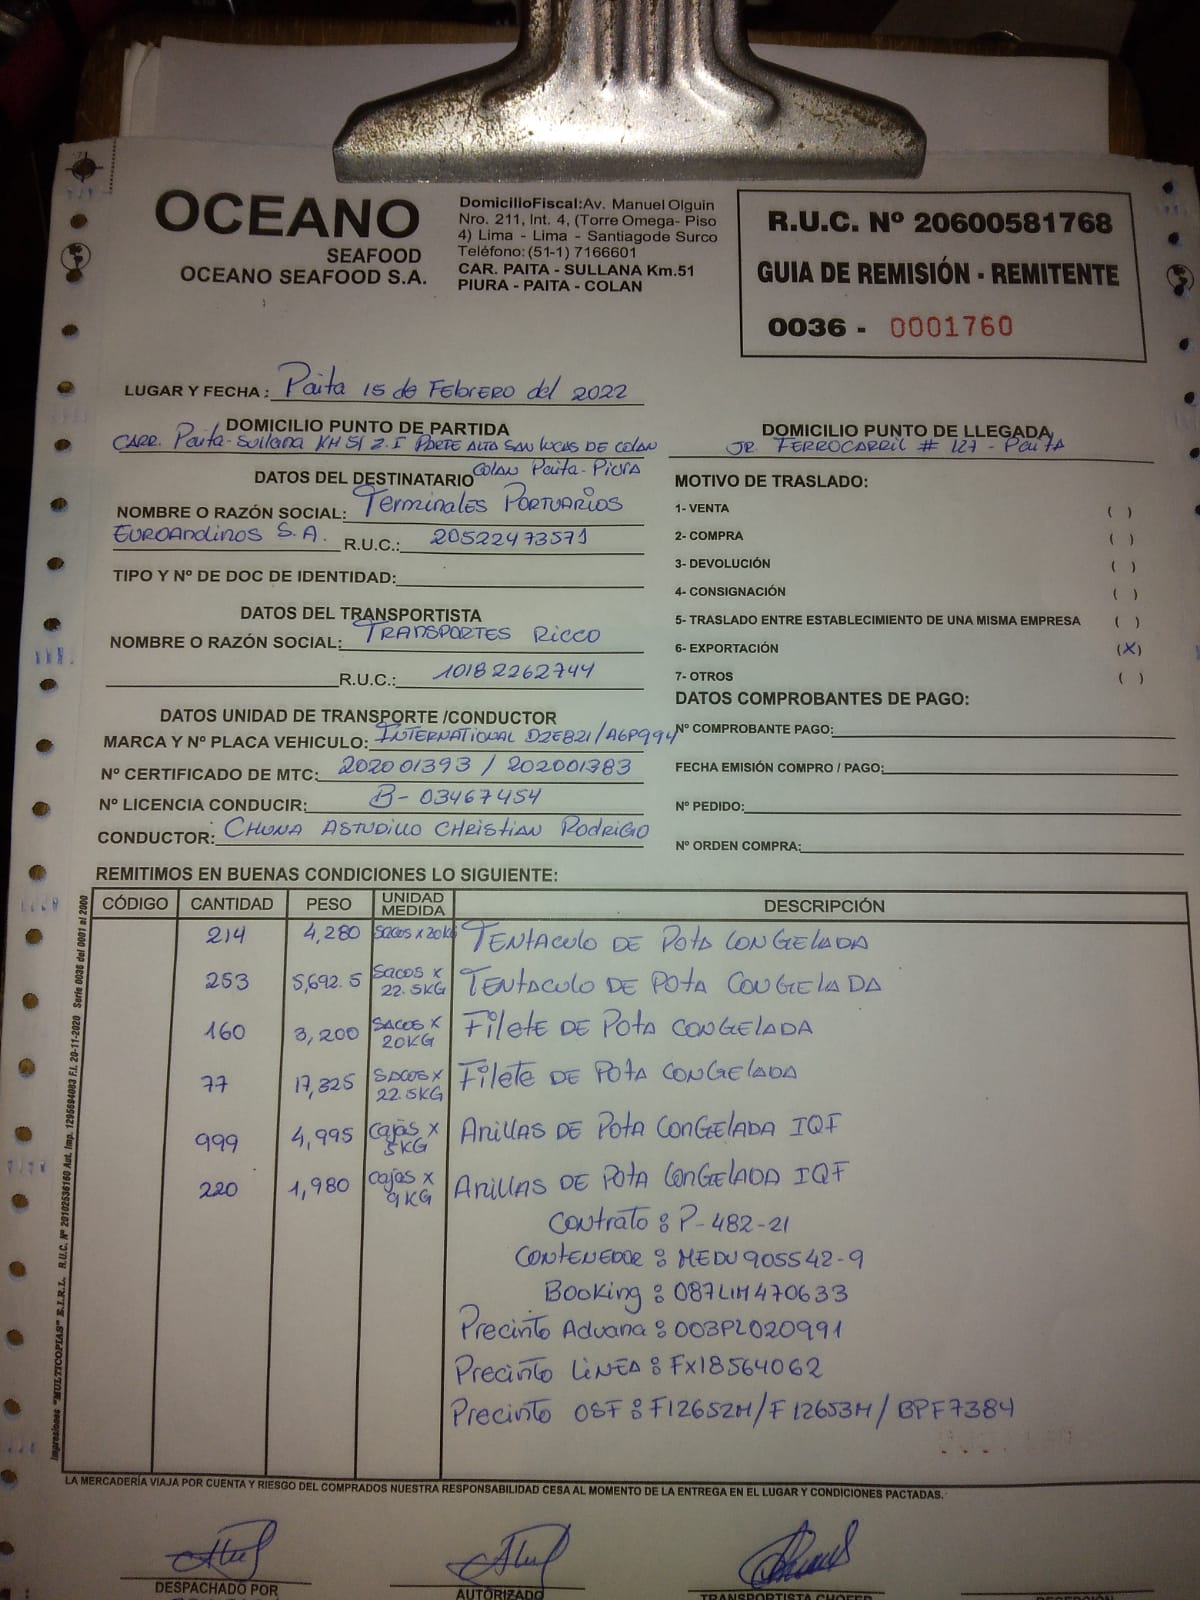 OCEANO
SEAFOOD
OCEANO SEAFOOD S.A.
DomicilioFiscal:Av. Manuel Olguin
Nro. 211, Int. 4, (Torre Omega- Piso
4) Lima - Lima - Santiagode Surco
Teléfono: (51-1) 7166601
CAR. PAITA - SULLANA Km.51
PIURA - PAITA - COLAN
R.U.C. Nº 20600581768
GUIA DE REMISIÓN - REMITENTE
0036 - 0001760
LUGAR Y FECHA : Paita 15 de Febrero del 2022
DOMICILIO PUNTO DE PARTIDA
CARR. Paita-Sullana KM 51 Z.I PARTE ALTA SAN LUCAS DE COLAN
COLAN Paita-Piura
DOMICILIO PUNTO DE LLEGADA
JR. FERROCARRIL # 127 - Paita
DATOS DEL DESTINATARIO
NOMBRE O RAZÓN SOCIAL: Terminales Portuarios
Euroandinos S.A. R.U.C.: 20522473571
TIPO Y Nº DE DOC DE IDENTIDAD:
DATOS DEL TRANSPORTISTA
NOMBRE O RAZÓN SOCIAL: TRANSPORTES RICCO
R.U.C.: 10182262744
DATOS UNIDAD DE TRANSPORTE /CONDUCTOR
MARCA Y Nº PLACA VEHICULO: INTERNATIONAL D2E821/A6P994
Nº CERTIFICADO DE MTC: 202001393 / 202001383
Nº LICENCIA CONDUCIR: B-03467454
CONDUCTOR: CHUNA ASTUDILLO CHRISTIAN RODRIGO
MOTIVO DE TRASLADO:
1- VENTA ( )
2- COMPRA ( )
3- DEVOLUCIÓN ( )
4- CONSIGNACIÓN ( )
5- TRASLADO ENTRE ESTABLECIMIENTO DE UNA MISMA EMPRESA ( )
6- EXPORTACIÓN (X)
7- OTROS ( )
DATOS COMPROBANTES DE PAGO:
Nº COMPROBANTE PAGO:
FECHA EMISIÓN COMPRO / PAGO:
Nº PEDIDO:
Nº ORDEN COMPRA:
REMITIMOS EN BUENAS CONDICIONES LO SIGUIENTE:
CÓDIGO CANTIDAD PESO UNIDAD MEDIDA DESCRIPCIÓN
214 4,280 Sacos x 20KG TENTACULO DE POTA CONGELADA
253 5,692.5 Sacos x 22.5KG TENTACULO DE POTA CONGELADA
160 3,200 SACOS X 20KG Filete DE POTA CONGELADA
77 17,325 SACOS X 22.5KG Filete DE POTA CONGELADA
999 4,995 cajas x 5KG Anillas DE POTA CONGELADA IQF
220 1,980 cajas x 9KG Anillas DE POTA CONGELADA IQF
Contrato : P-482-21
CONTENEDOR : MEDU905542-9
Booking : 087LIM470633
Precinto Aduana : 003PL020991
Precinto LINEA : FX18564062
Precinto OSF : F12652M/F12653M/BPF7384
LA MERCADERÍA VIAJA POR CUENTA Y RIESGO DEL COMPRADOS NUESTRA RESPONSABILIDAD CESA AL MOMENTO DE LA ENTREGA EN EL LUGAR Y CONDICIONES PACTADAS.
Impresiones "MULTICOPIAS" E.I.R.L. R.U.C. Nº 20102536160 Aut. Imp. 1295694083 F.I. 20-11-2020 Serie 0036 del 0001 al 2000
DESPACHADO POR
AUTORIZADO
TRANSPORTISTA CHOFER
RECEPCIÓN